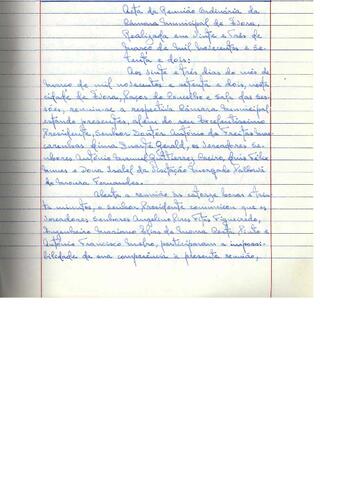 Acta da Reunião Ordinária da
Câmara Municipal de Évora,
Realizada em Vinte e Três de
Março de Mil Novecentos e Se-
tenta e dois:
Aos vinte e três dias do mês de
Março de mil novecentos e setenta e dois, nesta
cidade de Évora, Paços do Concelho e sala das ses-
sões, reuniu-se a respectiva Câmara Municipal
estando presentes, além do seu Excelentíssimo
Presidente, Senhor Doutor António de Freitas Mas-
carenhas Lima Duarte Geral, os Vereadores Se-
nhores António Manuel Guttierrez Paeiro, Luis Félix
Nunes e Dona Isabel da Visitação
de Moura Fernandes.
Aberta a reunião às catorze horas e trin-
ta minutos, o senhor Presidente comunicou que os
vereadores senhores Angelino Pires Fitas Figueiredo,
Engenheiro Mariano Elias da Mouta Pinto e
António Francisco Metro, participaram a impossi-
bilidade da sua comparência à presente reunião,